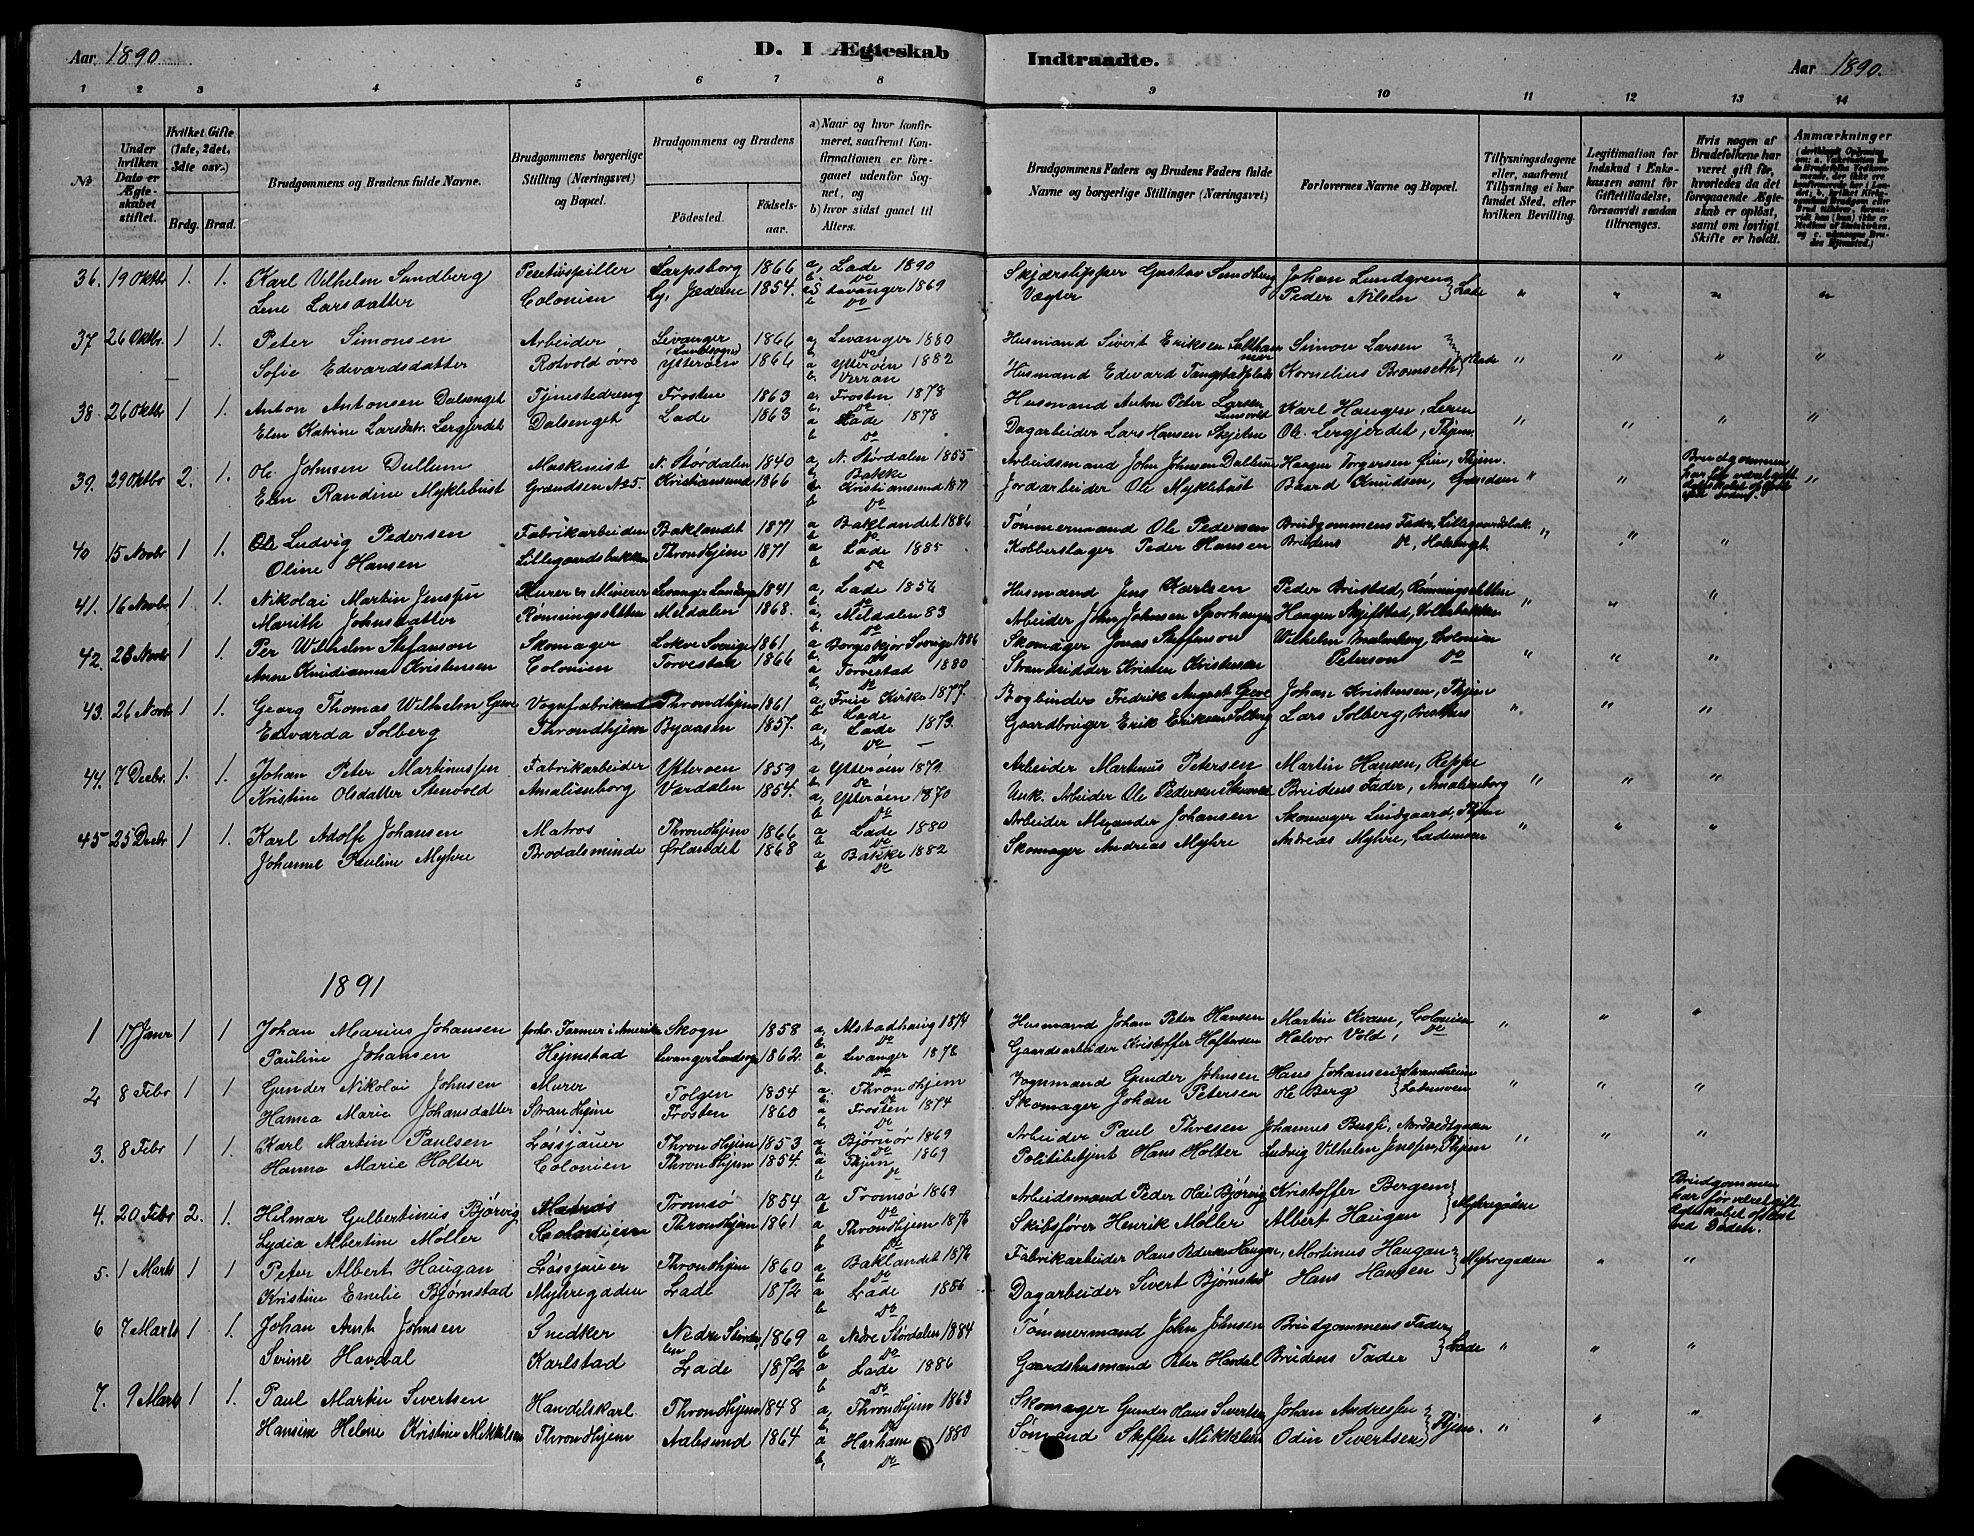 Aar 1890. D. I Ægteskab Indtraadte. Aar 1890.
1 2 3 4 5 6 7 8 9 10 11 12 13 14
No
Under hvilken Dato er Ægteskabet stiftet.
Hvilket Gifte (1ste, 2det, 3die osv.)
Brdg. Brud.
Brudgommens og Brudens fulde Navne.
Brudgommens borgerlige Stilling (Næringsvei) og Bopæl.
Brudgommens og Brudens
Fødested. Fødselsaar.
a) Naar og hvor konfirmeret, saafremt Konfirmationen er foregaaet udenfor Sognet, og
b) hvor sidst gaaet til Alters.
Brudgommens Faders og Brudens Faders fulde Navne og borgerlige Stillinger (Næringsvei)
Forlovernes Navne og Bopæl.
Tillysningsdagene eller, saafremt Tillysning ei har fundet Sted, efter hvilken Bevilling.
Legitimation for Indskud i Enkekassen samt for Giftetilladelse, forsaavidt saadan tiltrænges.
Hvis nogen af Brudefolkene har været gift før, hvorledes da det foregaaende Ægteskab er opløst, samt om lovligt Skifte er holdt.
Anmærkninger
36. 19 Oktbr 1. 1. Karl Vilhelm Sundberg Positivspiller Sarpsborg 1866 a, Lade 1890 Skjærslipper Gustav Sundberg Johan Lundgren } Lade
Lene Larsdatter Colonien Jæderen 1854. Stavanger 1869 Vægter Peder Nilsen
37 26 Oktbr. 1 1. Peter Simonsen Arbeider Levanger (Landsogn) 1866 a, Levanger 1880 Husmand Sivert Eriksen Simon Larsen } Lade
Sofie Edvardsdatter Rotvold øvre Ytterøen 1866 a Ytterøen 1882 b. Verran Husmand Edvard Tangstadplads Kornelius Bromseth
38. 26 Oktbr 1 1. Anton Antonsen Dalsenget Tjenestedreng Frosten 1863 a, Frosten 1878 Husmand Anton Peter Larsen Karl Haugen, Leren
Elen Katrine Larsdatr. Lergjerdet Dalsenget Lade 1863 a Lade 1878 Dagarbeider Lars Hansen Ole Lergjerdet, Thjem.
39. 29 Oktbr 2. 1. Ole Johnsen Dullum Maskinist N. Størdalen 1840 a, N. Størdalen 1855 b. Bakke Arbeidsmand John Johnsen Dullum Haagen Torgersen Øien, Thjem. Brudgommen
Elen Randine Myklebust Grændsen No 5 Kristiansund 1866 Kristiansund Jordarbeider Ole Myklebust Baard Knudsen, Grændsen
40 15 Novbr 1 1. Ole Ludvig Pedersen Fabrikarbeider Baklandet 1871 a Baklandet 1886 Tømmermand Ole Pedersen Brudgommens Fader, Lillegaardsbak.
Oline Hansen Lillegaardsbakken Throndhjem 1871 a Lade 1885 Kobberslager Peder Hansen Brudens Do,
41. 16 Novbr 1 1. Nikolai Martin Jensen Murer & Minerer Levanger Landsogn 1841 a, Lade 1856 Husmand Jens Karlsen Peder Brustad, Rønningsletten
Marith Johnsdatter Rønningsletten Meldalen 1868. a, Meldalen 83 Arbeider John Johnsen Sporhaugen Haagen Skjefstad,
42. 23 Novbr 1 1. Per Wilhelm Stefanson Skomager Sverige 1861. a, Sverige 1886 Skomager Jonas Steffenson Wilhelm Malmberg, Colonien
Anne Knudianna Kristensen Colonien Torvestad 1866 a Torvestad 1880 Strandsidder Kristen Kristensen Peterson Do
43. 26 Novbr 1 1. Georg Thomas Wilhelm Geve Vognfabrikant Throndhjem 1861 a, Freie Kirke 1877. b Lade Bogbinder Fredrik August Geve Johan Kristensen, Thjem
Edvarda Solberg Throndhjem Byaasen 1857. a, Lade 1873. Gaardbruger Erik Eriksen Solberg Lars Solberg,
44. 7 Decbr. 1. 1. Johan Peter Martinussen Fabrikarbeider Ytterøen 1859 a Ytterøen 1879 Arbeider Martinus Petersen Martin Hansen, Reppe
Kristine Olsdatter Stenvold Amalienborg Værdalen 1854. a, Ytterøen 1870 Arbeider Ole Pedersen Stenvold Brudens Fader, Amalienborg
45 25 Decbr 1. 1. Karl Adolf Johansen Matros Throndhjem 1866 a Lade 1880 Arbeider Alexander Johansen Skomager Lindgaard, Thjem
Johanne Pauline Myhre Brodalsminde Ørlandet 1868 a Bakke 1882 Skomager Andreas Myhre Andreas Myhre, Lademoen
1891
1 17 Janr 1 1 Johan Marius Johansen forhv. Farmer i Amerika Skogn 1858 a, Alstadhaug 1874 Husmand Johan Peter Hansen Martin Kvam, Colonien
Pauline Johansen Hejmstad Levanger Landsogn 1862. a Levanger 1878 Gaardsarbeider Kristoffer Haftorsen Halvor Vold, Do
2 8 Febr 1 1 Gunder Nikolai Johnsen Murer Tolgen 1854 a. Throndhjem Vognmand Gunder Johnsen Hans Johansen
Hanna Marie Johansdatter Strandhjem Frosten 1860 a Frosten 1874 Skomager Johan Petersen Ole Berg } Lademoen
3. 8 Febr 1 1. Karl Martin Paulsen Løssjauer Throndhjem 1853 a Bjørnør 1869 Arbeider Paul Thresen Johannes Buseth,
Hanna Marie Holter Colonien Throndhjem 1854. a Thjem 1869 Politibetjent Hans Holter Ludvig Vilhelm Jensen, Thjem
4. 20 Febr 2. 1. Hilmar Gulbertinus Bjørvig Matros Tromsø 1854 a Tromsø 1869 Arbeidsmand Peder Hai Bjørvig Kristoffer Bergem } Myhregaden Brudgommen har før været gift. Ægteskabet opløst ved Døden.
Lydia Albertine Møller Colonien Throndhjem 1861 a Throndhjem 1876 Skibsfører Henrik Møller Albert Haugan
5. 1 Marts 1 1 Peter Albert Haugan Løssjauer Throndhjem 1860 a Baklandet 1876 Fabrikarbeider Hans Pedersen Haugan, Martinus Haugan } Myhregaden
Kristine Emilie Bjørnstad Myhregaden Lade 1872 a Lade 1886 Dagarbeider Sivert Bjørnstad Hans Hansen
6 7 Marts 1 1. Johan Arnt Johnsen Snedker Nedre Størdalen 1869 a Nedre Størdalen 1884 Tømmermand John Johnsen Brudgommens Fader } Lade
Serine Havdal Karlstad Lade 1872 a Lade 1886 Gaardshusmand Peter Havdal Brudens Fader
7. 9 Marts 1 1. Paul Martin Sivertsen Handelskarl Throndhjem 1848 a, Throndhjem 1863 Skomager Gunder Hans Sivertsen Johan Andresen } Thjem.
Hansine Helene Kristine Mikkelsen Throndhjem Aalesund 1864 a Harham 1880 Sømand Steffen Mikkelsen Odin Sivertsen